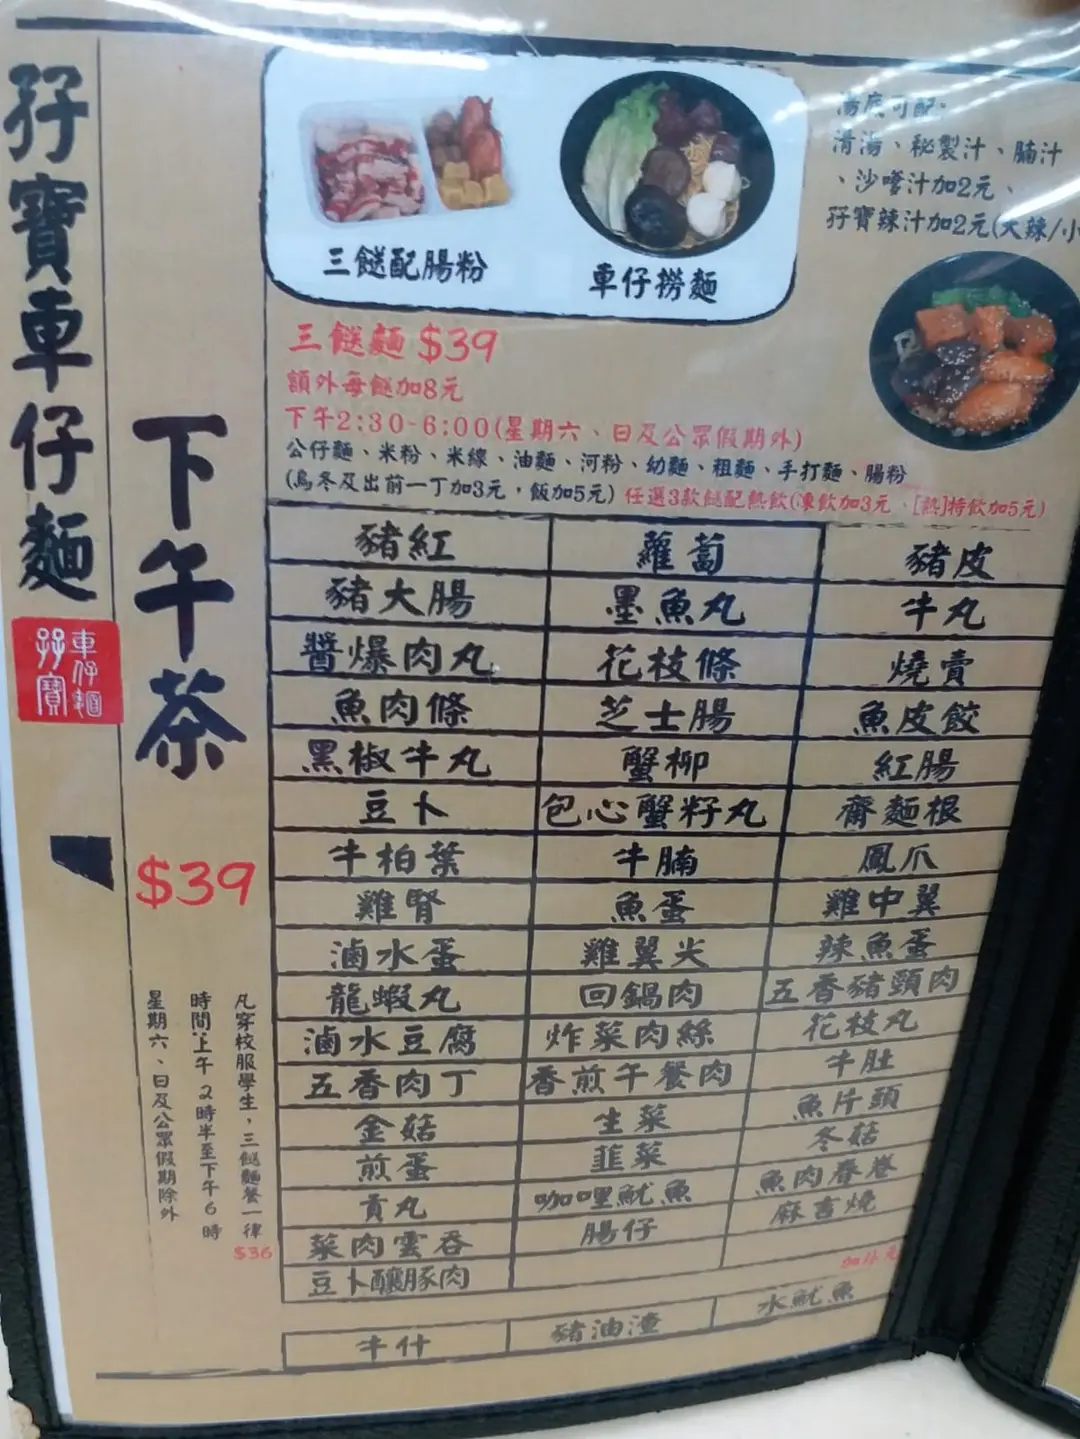 孖寶車仔麵
孖寶
車仔麵
下午茶
$39
凡穿校服學生，三餸麵餐一律
$36
時間:上午 2時半至下午6時
星期六、日及公眾假期除外
三餸配腸粉
車仔撈麵
湯底可配:
清湯、秘製汁、腩汁
、沙嗲汁加2元、
孖寶辣汁加2元(大辣/小
三餸麵 $39
額外每餸加8元
下午2:30-6:00(星期六、日及公眾假期外)
公仔麵、米粉、米線、油麵、河粉、幼麵、粗麵、手打麵、腸粉
(烏冬及出前一丁加3元，飯加5元) 任選3款餸配熱飲(凍飲加3元、[熱]特飲加5元)
豬紅 蘿蔔 豬皮
豬大腸 墨魚丸 牛丸
醬爆肉丸 花枝條 燒賣
魚肉條 芝士腸 魚皮餃
黑椒牛丸 蟹柳 紅腸
豆卜 包心蟹籽丸 齋麵根
牛柏葉 牛腩 鳳爪
雞腎 魚蛋 雞中翼
滷水蛋 雞翼尖 辣魚蛋
龍蝦丸 回鍋肉 五香豬頸肉
滷水豆腐 炸菜肉絲 花枝丸
五香肉丁 香煎午餐肉 牛肚
金菇 生菜 魚片頭
煎蛋 韮菜 冬菇
貢丸 咖哩魷魚 魚肉春卷
菜肉雲吞 腸仔 麻吉燒
豆卜釀豚肉
牛什 豬油渣 水魷魚